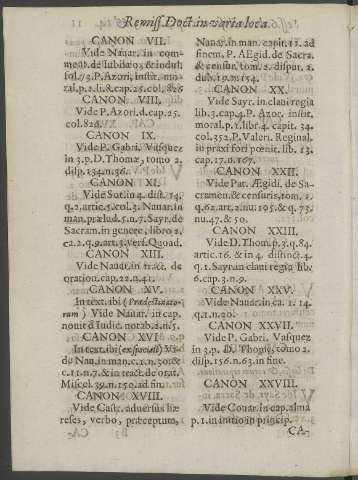 Remiss. Doct. in varia loca.
CANON VII.
Vide Nauar. in com-
ment. de Iubilæo, & indul.
fol. 73. P. Azori, instit. mo-
ral. p. 1. li. 8. cap. 25. col. 826
CANON VIII.
Vide P. Azori. d. cap. 25.
col. 826.
CANON IX.
Vide P. Gabri. Vasquez
in 3. p. D. Thomæ, tomo 2.
disp. 134. n. 36.
CANON XI.
Vide Sot. in 4. dist. 14.
q. 2. artic. 5. col. 3. Nauar. in
man. prælud. 5. n. 7. Sayr. de
Sacram. in genere, libro 2.
ca. 2. q. 9. art. 3. vers. Quoad.
CANON XIII.
Vide Nauar. in tract. de
oration. cap. 22. n. 41.
CANON XV.
In text. ibi (Prædestinato-
rum) Vide Nauar. in cap.
nouit d Iudic. notab. 2. n. 5.
CANON XVI
In text. ibi (ex speciali) Vi-
de Nau. in man. c. 1. n. 30. &
c. 11. n. 7. & in tract. de orat.
Miscel. 39. n. 150. ad fin.
CANON XVIII.
Vide Castr. aduersus hæ
reses, verbo, præceptum,
Nauar. in man. capit. 12. ad
finem, P. Ægid. de Sacra.
& censur. tom. 2. disput. 1.
dub. 19. n. 154.
CANON XX.
Vide Sayr. in claui regia
lib. 3. cap. 4. P. Azor. instit.
moral. p. 1. libr. 4. capit. 34.
col. 352. P. Valeri. Reginal.
in praxi fori pœnit. lib. 13.
cap. 17. n. 167.
CANON XXII.
Vide Pat. Ægidi. de Sa-
cramen. & censuris, tom. 1.
q. 62. art. 2. nu. 195. & q. 73.
nu. 47. & 50.
CANON XXIII.
Vide D. Thom. p. 3. q. 84.
artic. 16. & in 4. distinct. 4.
q. 1. Sayr. in claui regia lib.
6. cap. 3. n. 9.
CANON XXV.
Vide Nauar. in ca. 1. 14.
q. 1. n. 30.
CANON XXVII.
Vide P. Gabri. Vasquez
in 3. p. D. Thomæ, tomo 2.
disp. 156. n. 63. in fine.
CANON XXVIII.
Vide Couar. in cap. alma
p. 1. in initio in princip.
CA-